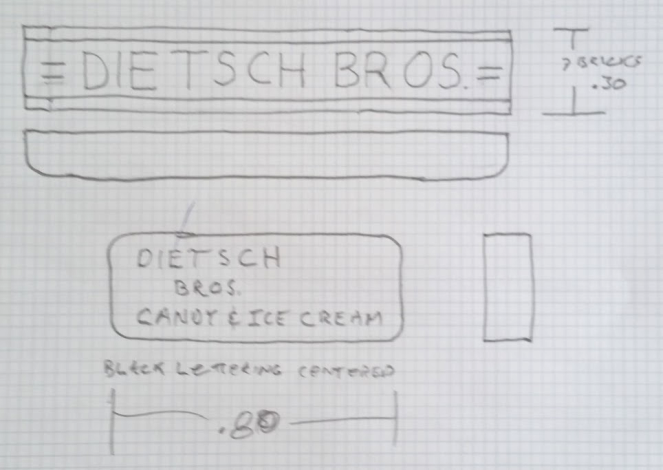 = DIETSCH BROS. =
7 BRICKS
.30
DIETSCH
BROS.
CANDY & ICE CREAM
BLACK LETTERING CENTERED
.80